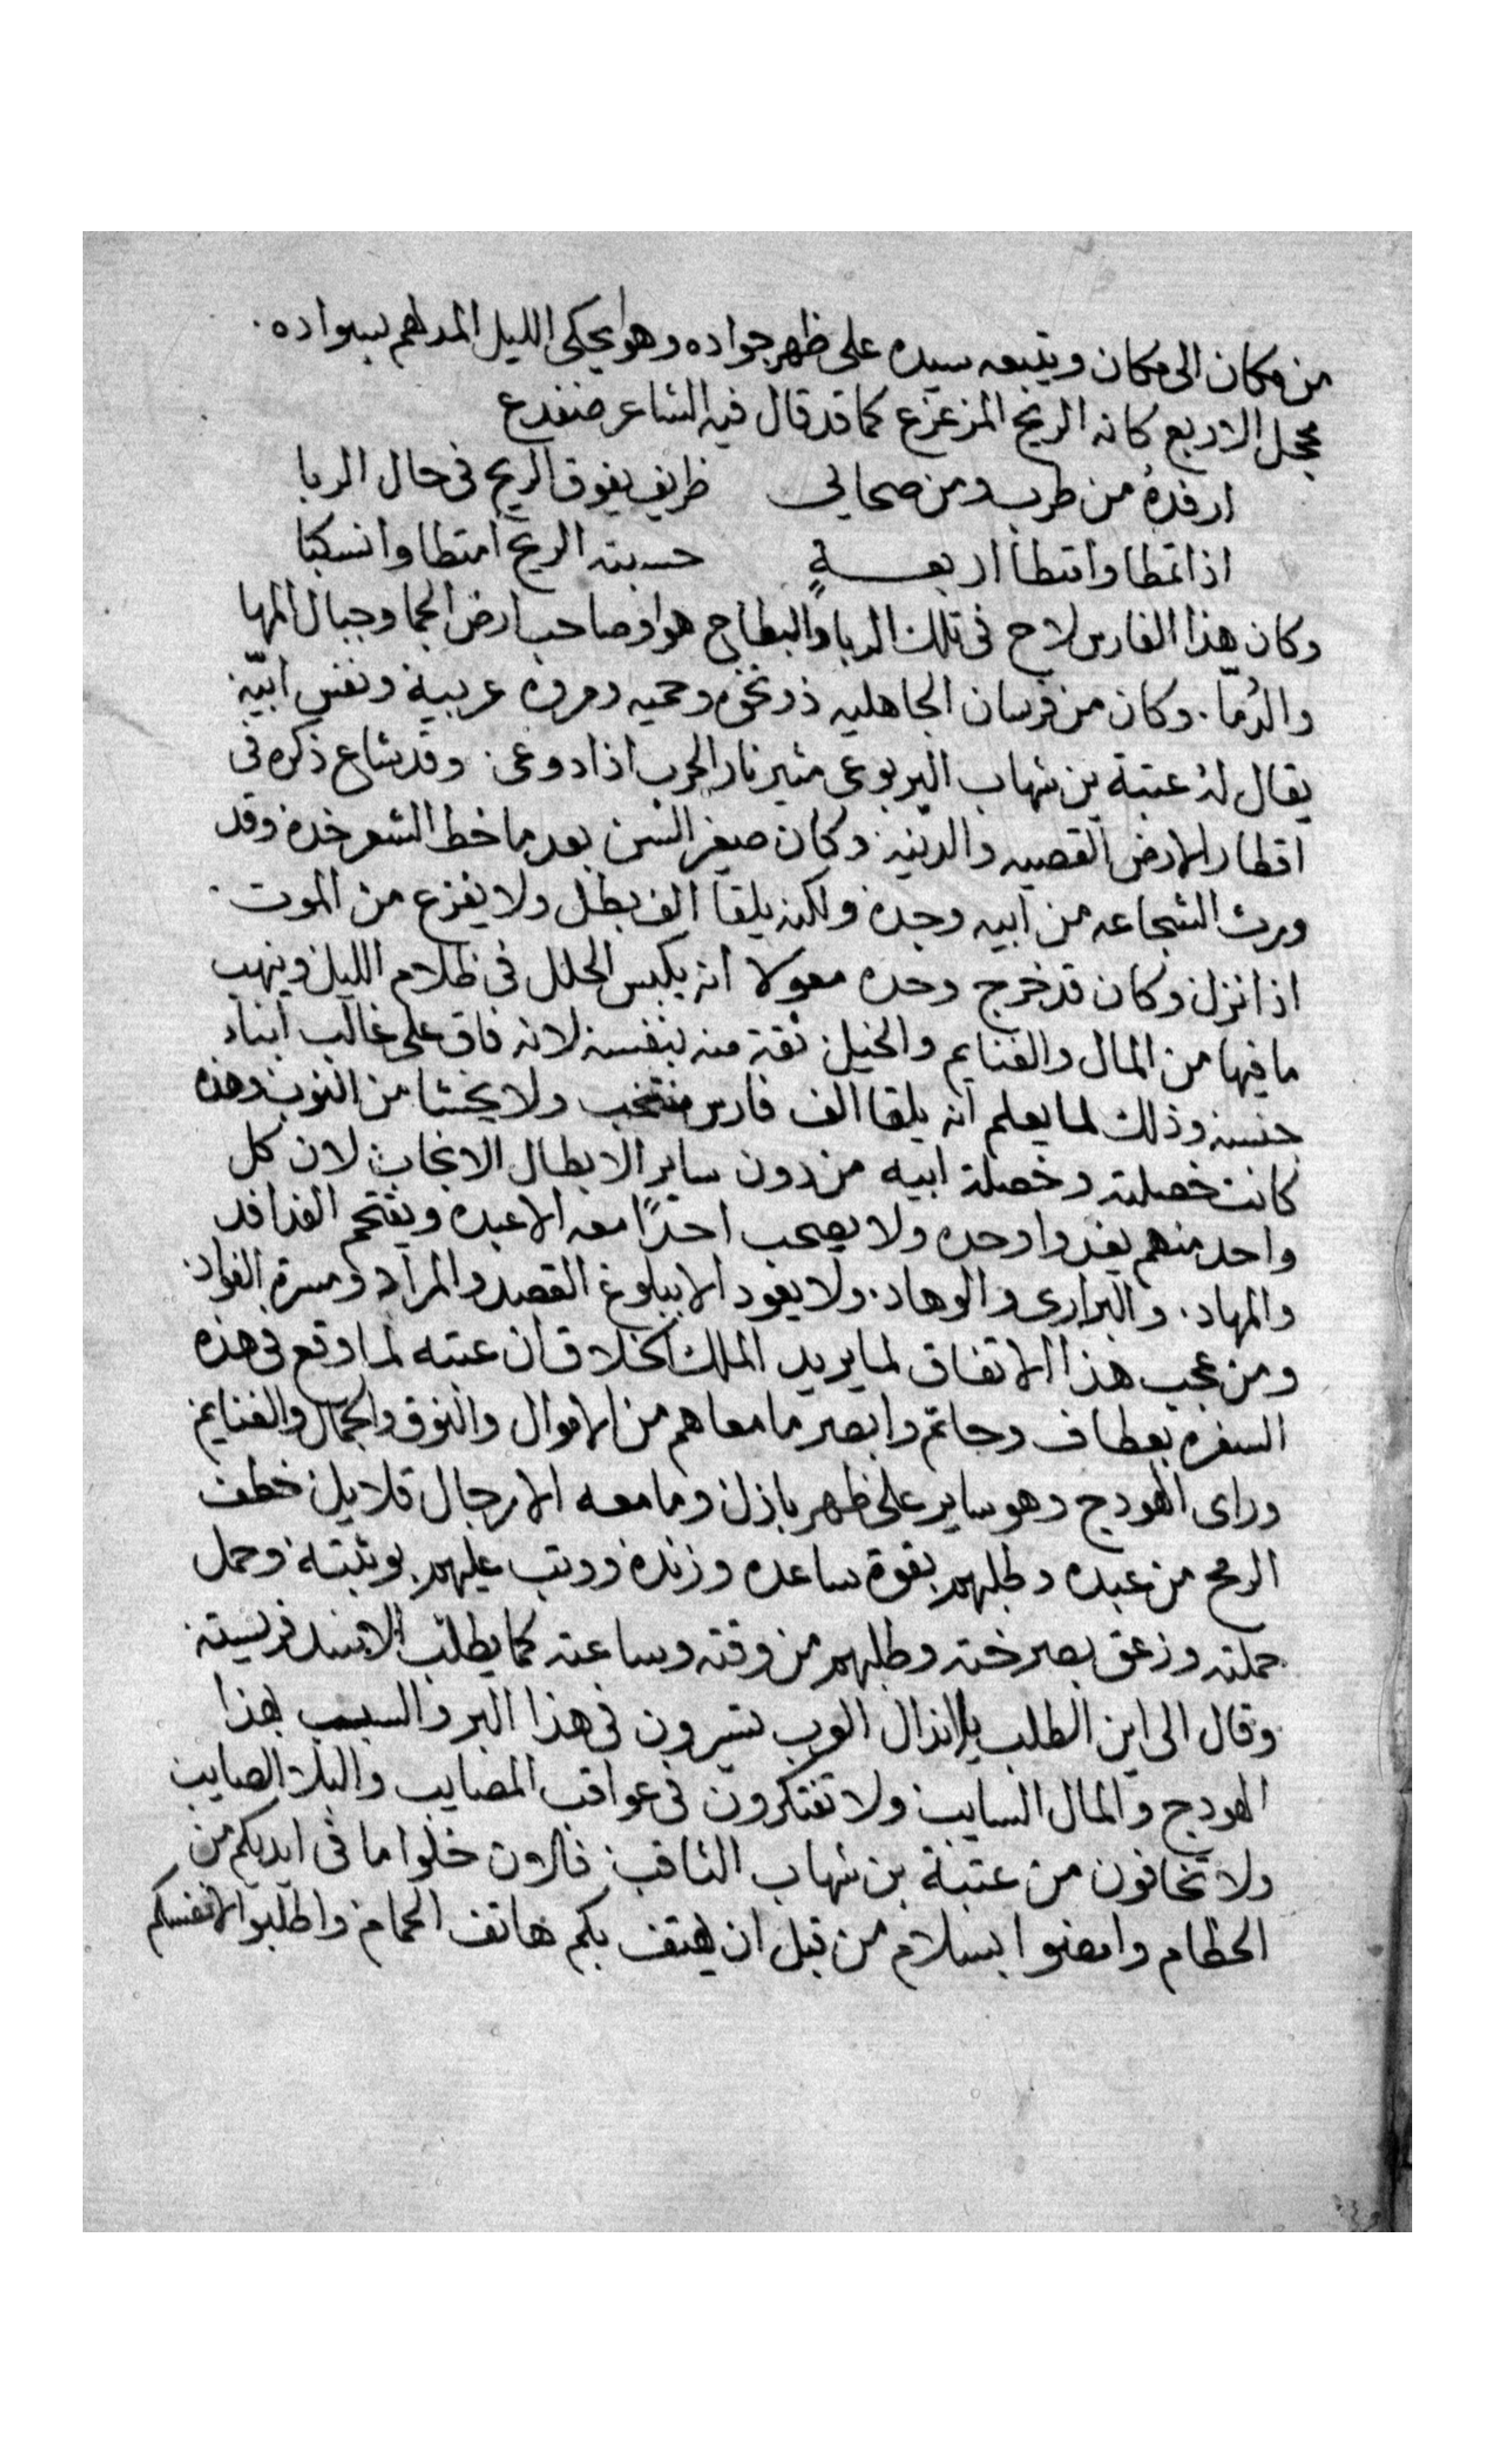 من مكان الى مكان ويتبعه سيده على ظهر جواده وهو يحكى الليل المدلهم بسواده.
محجل الاربع كانه الريح المزعزع كما قد قال فيه الشاعر ضفدع
ارفده من طرب ومن صحابى ظريف يفوق الريح فى حال الربا
اذا تمطا وامتطا اربعــة حسبته الريح امتطا وانسكبا
وكان هذا الفارس لاح فى تلك الربا والبطاح هو صاحب ارض الحما وجبال المها
والدُما. وكان من فرسان الجاهليه ذو نخوه وحميه ومروه عربية ونفس ابيّه
يقال لهُ عتبة بن شهاب اليربوعى مثير نار الحرب اذا دوعى. وقد شاع ذكره فى
اقطار الارض القصيه والدنيه. وكان صغير السن بعد ما خط الشعر خده وقد
ورث الشجاعه من ابيه وجده ولكنه يلقا الف بطل ولا يفزع من الموت.
اذا نزل وكان قد خرج وحده معولا انه يكبس الحلل فى ظلام الليل وينهب
ما فيها من المال والغنايم والخيل. ثقة منه بنفسه لانه فاق على غالب ابناء
جنسه وذلك لما يعلم انه يلقا الف فارس منتخب ولا يخشا من النوب وهذه
كانت خصلته وخصلة ابيه من دون ساير الابطال الانجاب لان كل
واحد منهم يغدوا وحده ولا يصحب احدًا معه الا عبده ويقتحم الفدافد
والمهاد. والبرارى والوهاد. ولا يعود الا ببلوغ القصد والمراد ومسرة الفواد.
ومن عجب هذا الاتفاق لما يريد الملك الخلاق ان عتبه لما وقع فى هذه
السفره بعطاف وحاتم وابصر ما معاهم من الاموال والنوق والجمال والغنايم
وراى الهودج وهو ساير على ظهر بازل وما معه الا رجال قلايل خطف
الرمح من عبده وطلبهم بقوة ساعده وزنده ووثب عليهم بوثبته وحمل
حملته وزعق بصرخته وطلبهم من وقته وساعته كما يطلب الاسد فريسته.
وقال الى اين الطلب يا انذال العرب تسيرون فى هذا البر والسبسب بهذا
الهودج والمال السايب ولا تفتكرون فى عواقب المصايب والبلا الصايب
ولا تخافون من عتبة بن شهاب الثاقب. خلوا ما فى ايديكم من
الحطام وامضوا بسلام من قبل ان يهتف بكم هاتف الحمام واطلبوا لانفسكم